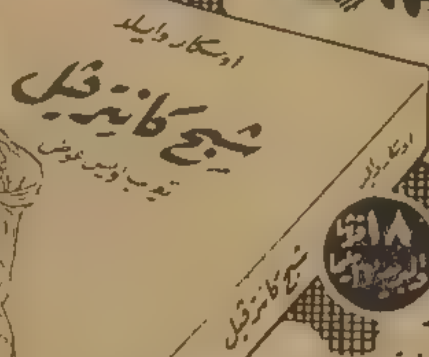 اوسكار وايلد
شبح كانترفيل
تعريب لويس عوض
اوسكار وايلد
شبح كانترفيل
١٨